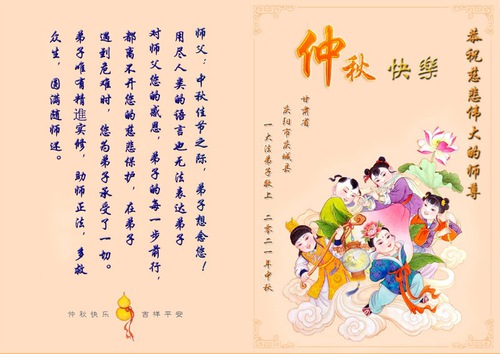 恭祝慈悲伟大的师尊
仲秋 快樂
甘肃省
庆阳市庆城县
一大法弟子敬上 二零二一年中秋
师父：中秋佳节之际，弟子想念您！
用尽人类的语言也无法表达弟子
对师父您的感恩，弟子的每一步前行，
都离不开您的慈悲保护，在弟子
遇到危难时，您为弟子承受了一切。
弟子唯有精進实修，助师正法，多救
众生，圆满随师还。
仲秋快乐 吉祥平安